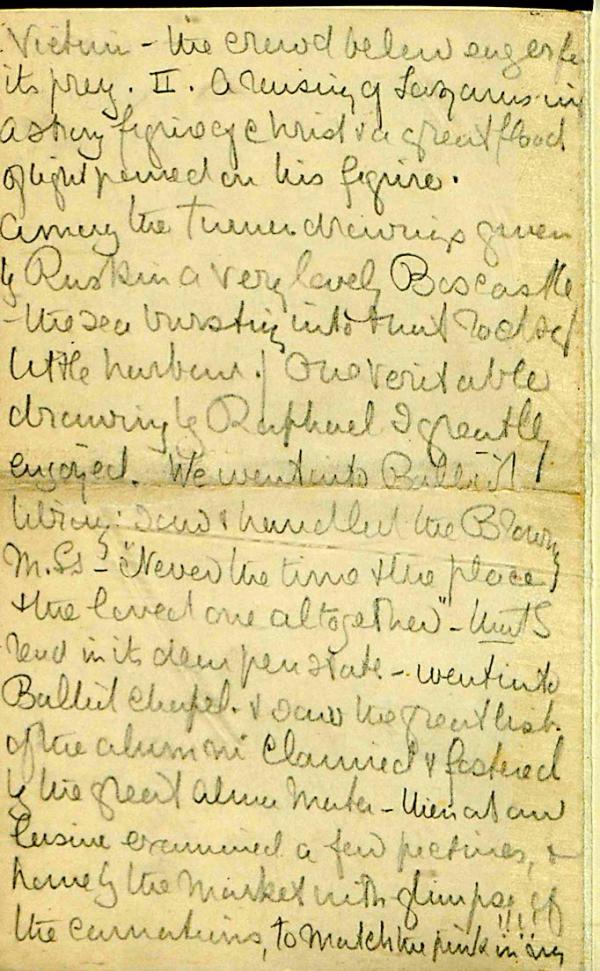 Victim - the crowd below eager for
its prey. II. A raising of Lazarus in
a strong figure of Christ & a great flood
of light poured on his figure.
Among the Turner drawings given
by Ruskin a very lovely Boscastle
- the sea bursting into that
little harbour! One veritable
drawing by Raphael I greatly
enjoyed. We went into Balliol
library: saw & handled the Browng
M.SS - "Never the time & the place
& the loved one altogether" -
read in its state - went into
Balliol Chapel. & saw the great list
of the alumni claimed & fostered
by the great Alma Mater - then at our
leisure examined a few pictures, &
home by the Market with glimpse of
the carnations, to match the pink in my